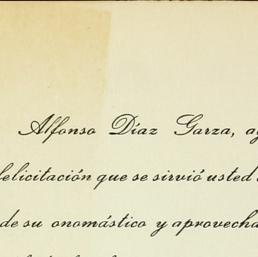 Alfonso Díaz Garza, a
felicitación que se sirvió usted
de su onomástico y aprovecha